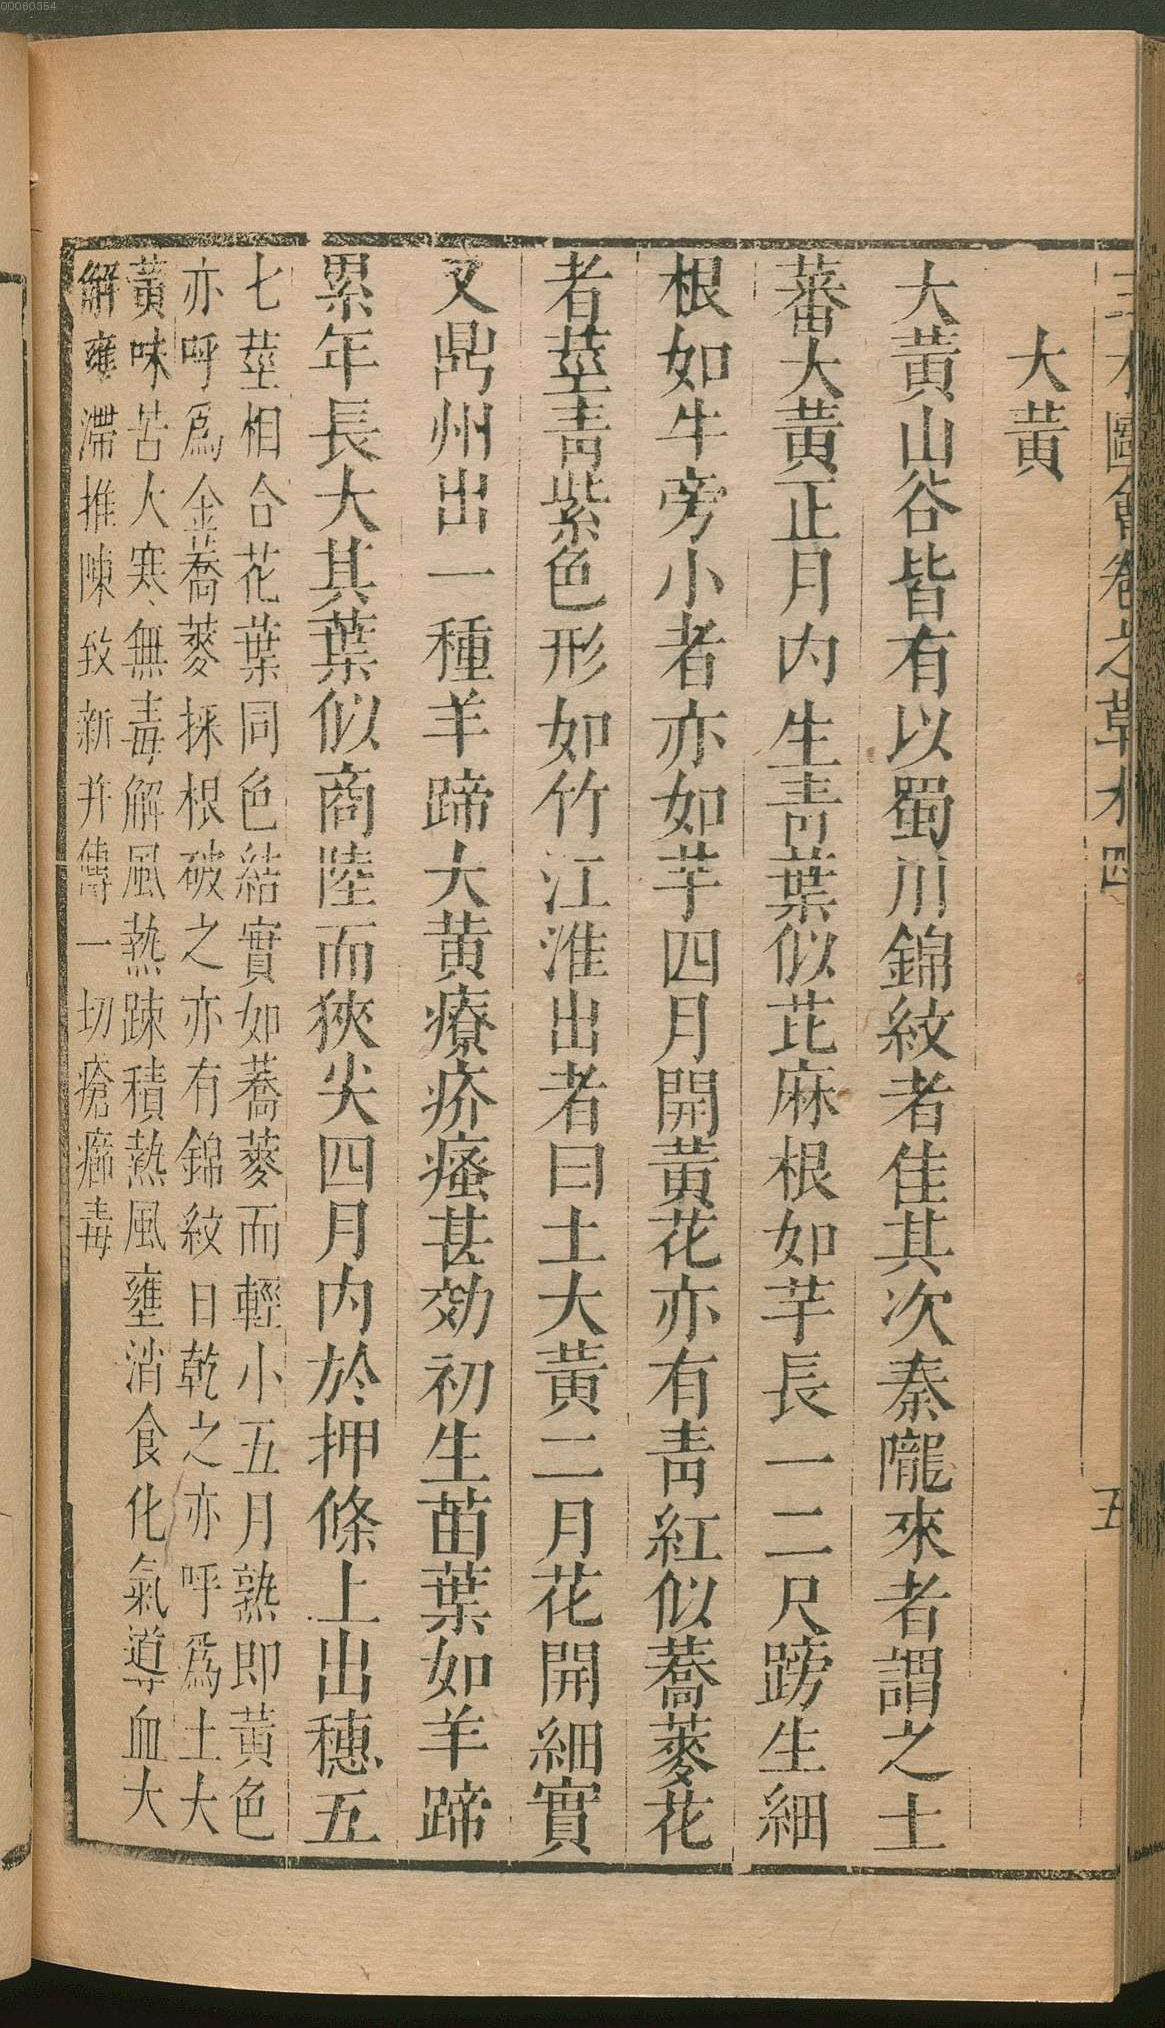 00060354
三才圖會卷之草木四 五
大黃
大黃山谷皆有以蜀川錦紋者佳其次秦隴來者謂之土
蕃大黃正月内生青葉似芘麻根如芋長一二尺蹐生細
根如牛旁小者亦如芋四月開黃花亦有青紅似蕎麥花
者莖青紫色形如竹江淮出者曰土大黃二月花開細實
又鼎州出一種羊蹄大黄療疥瘙甚効初生苗葉如羊蹄
累年長大其葉似商陸而狹尖四月内於押條上出穗五
七莖相合花葉同色結實如蕎麥而輕小五月熟即黃色
亦呼爲金蕎麥採根破之亦有錦紋日乾之亦呼爲土大
黃味苦大寒無毒解風熱踈積熱風壅消食化氣導血大
解壅滯推陳致新并傅一切瘡癤毒